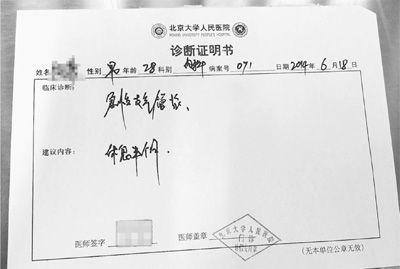 北京大学人民医院
PEKING UNIVERSITY PEOPLE'S HOSPITAL
诊断证明书
姓名 性别 男 年龄 28 科别 内科 病案号 071 日期 2014 年 6 月 18 日
临床诊断：
急性支气管炎、
建议内容：
休息半个月.
医师签字 医师盖章
北京大学人民医院
门诊
(无本单位公章无效)